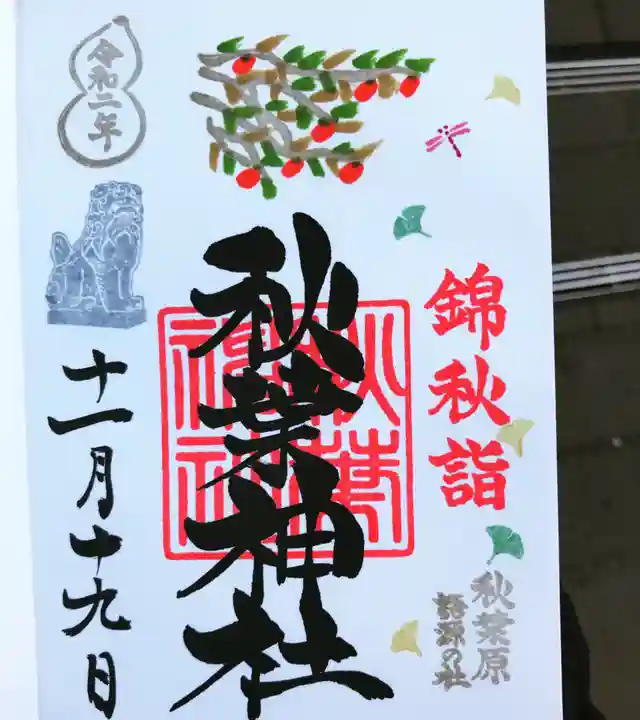 錦秋詣
秋葉原
語源の社
秋葉神社
秋葉
神社
令和二年
十一月十九日